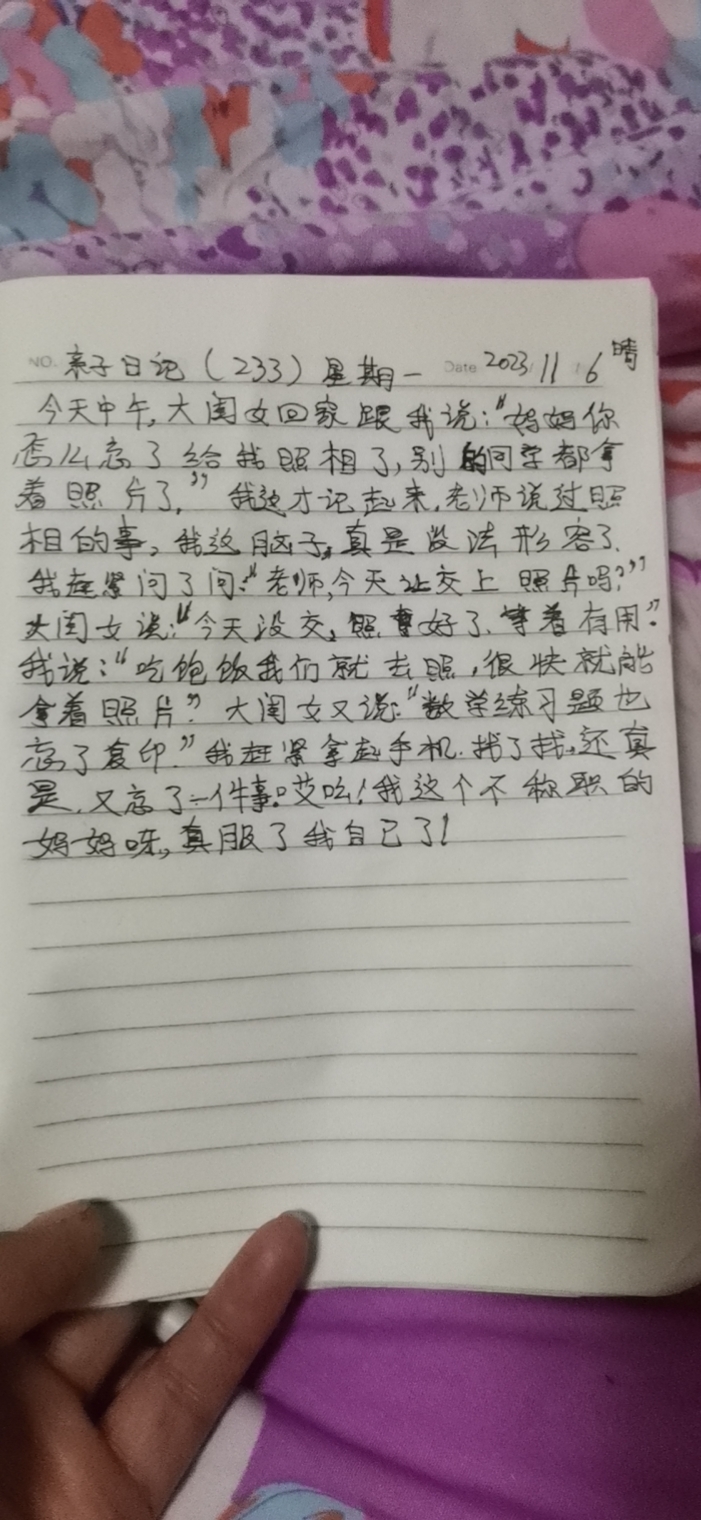 NO. 亲子日记（233）星期一 Date 2023 11 6 晴
今天中午，大闺女回家跟我说：“妈妈你
怎么忘了给我照相了，别的同学都拿
着照片了，”我这才记起来，老师说过照
相的事，我这脑子，真是没法形容了、
我赶紧问了问：“老师，今天让交上照片吗？”
大闺女说：“今天没交，照好了、等着有用”
我说：“吃饱饭我们就去照，很快就能
拿着照片”大闺女又说：“数学练习题也
忘了复印”我赶紧拿起手机、找了找，还真
是，又忘了一件事。哎吆！我这个不称职的
妈妈呀，真服了我自己了！